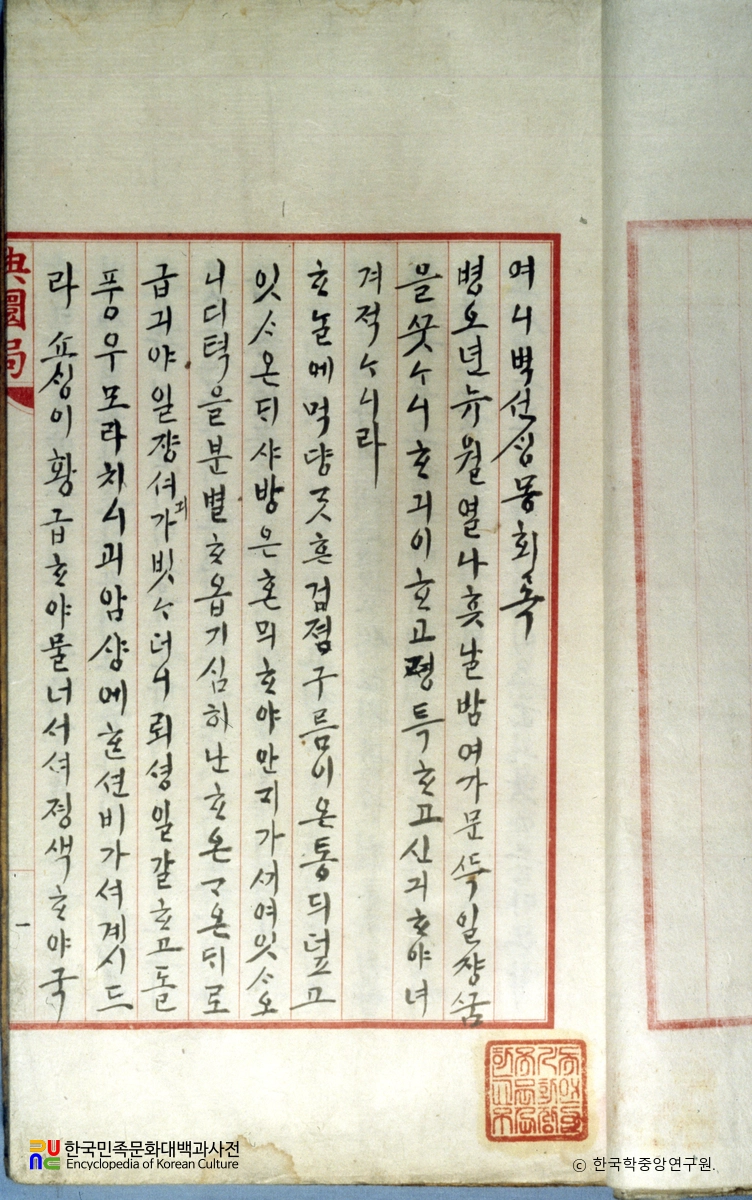 여니벽션싱몽회록
병오년뉴월열나흣날밤여가문득일쟝ᄭᅮᆷ
을ᄭᅮᆺᄂᆞ니ᄒᆞ긔이ᄒᆞ고평특ᄒᆞ고신긔ᄒᆞ야녀
겨적ᄂᆞ니라
ᄒᆞᄂᆞᆯ에먹댱ᄀᆞᆺᄒᆞᆫ검졈구름이온통듸덥고
잇ᄉᆞ온ᄃᆡ샤방은혼믜ᄒᆞ야안ᄀᆡ가셔여잇ᄉᆞ오
니디텩을분별ᄒᆞ옵기심히난ᄒᆞ온ᄀᆞ온ᄃᆡ로
급긔야일쟝셔긔가빗ᄂᆞ더니뢰셩일갈ᄒᆞ고돌
풍우모라치니괴암샹에ᄒᆞᆫ션비가셔계시드
라 쇼싱이황급ᄒᆞ야물너서셔졍색ᄒᆞ야국
典圜局
一
한국민족문화대백과사전
Encyclopedia of Korean Culture
ⓒ 한국학중앙연구원.